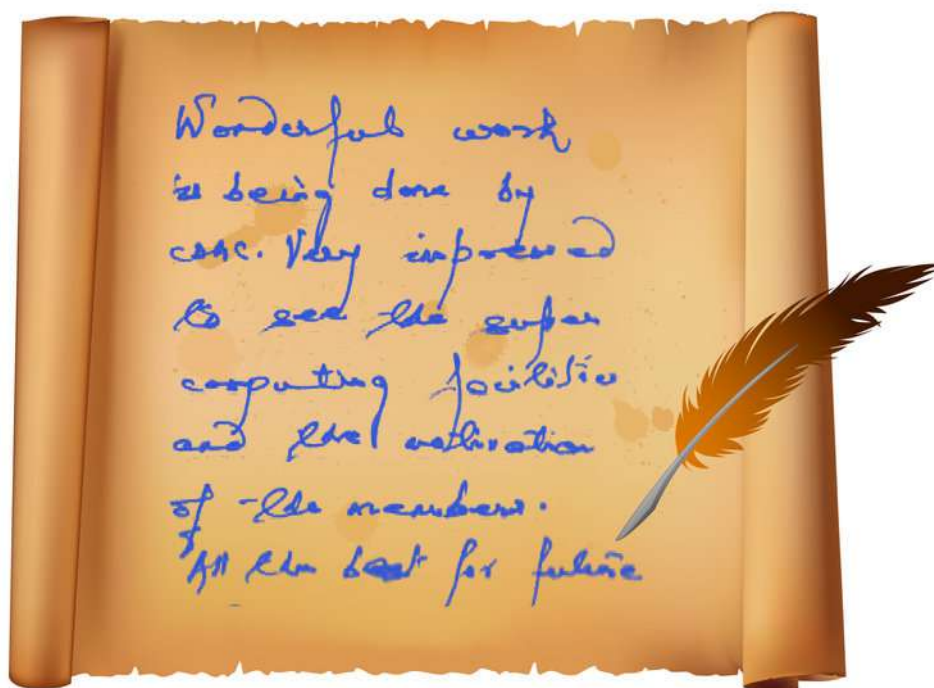 Wonderful work
is being done by
CDAC. Very impressed
to see the super
computing facilities
and the motivation
of the members.
All the best for future